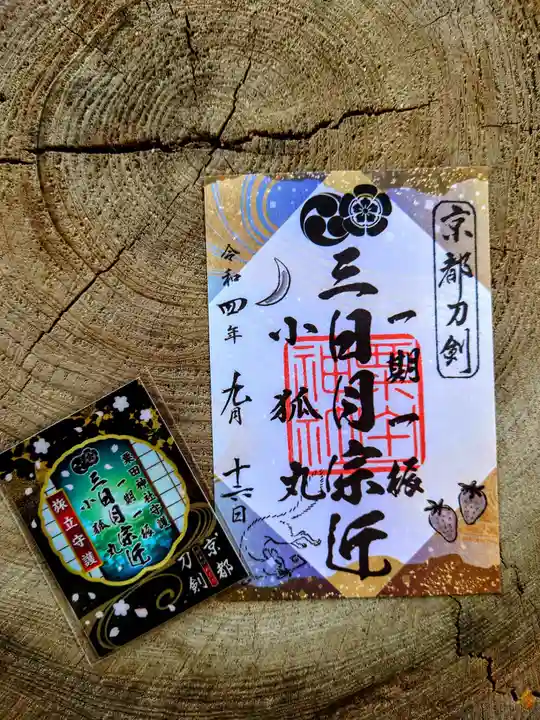 京都刀剣
一期一振
三日月宗近
小狐丸
令和四年 九月 十六日
粟田神社
粟田神社守護
一期一振
三日月宗近
小狐丸
旅立守護
京都
刀剣